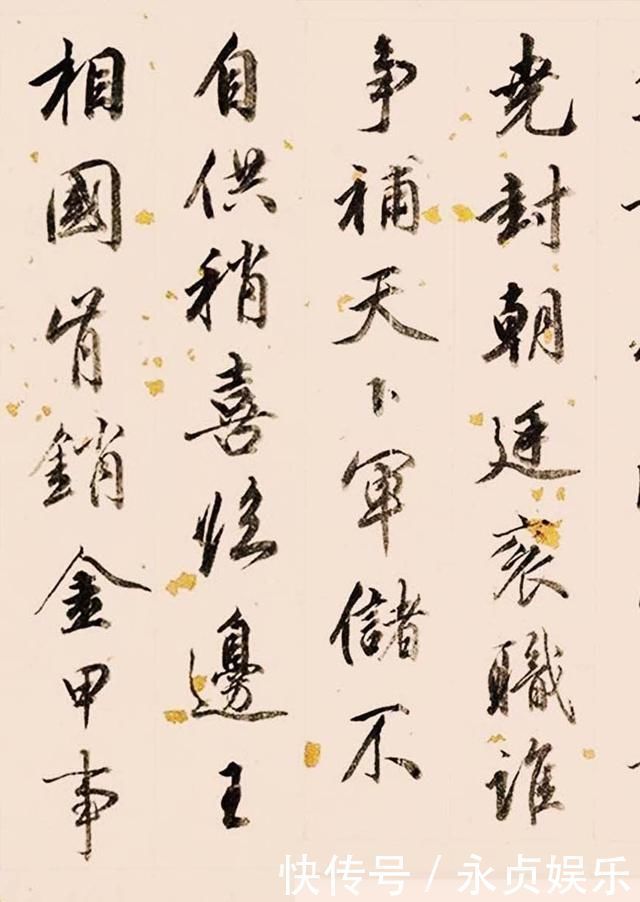 尭封朝廷袞職誰
争補天下軍儲不
自供稍喜臨邊王
相國肯銷金甲事
快传号/永贞娱乐